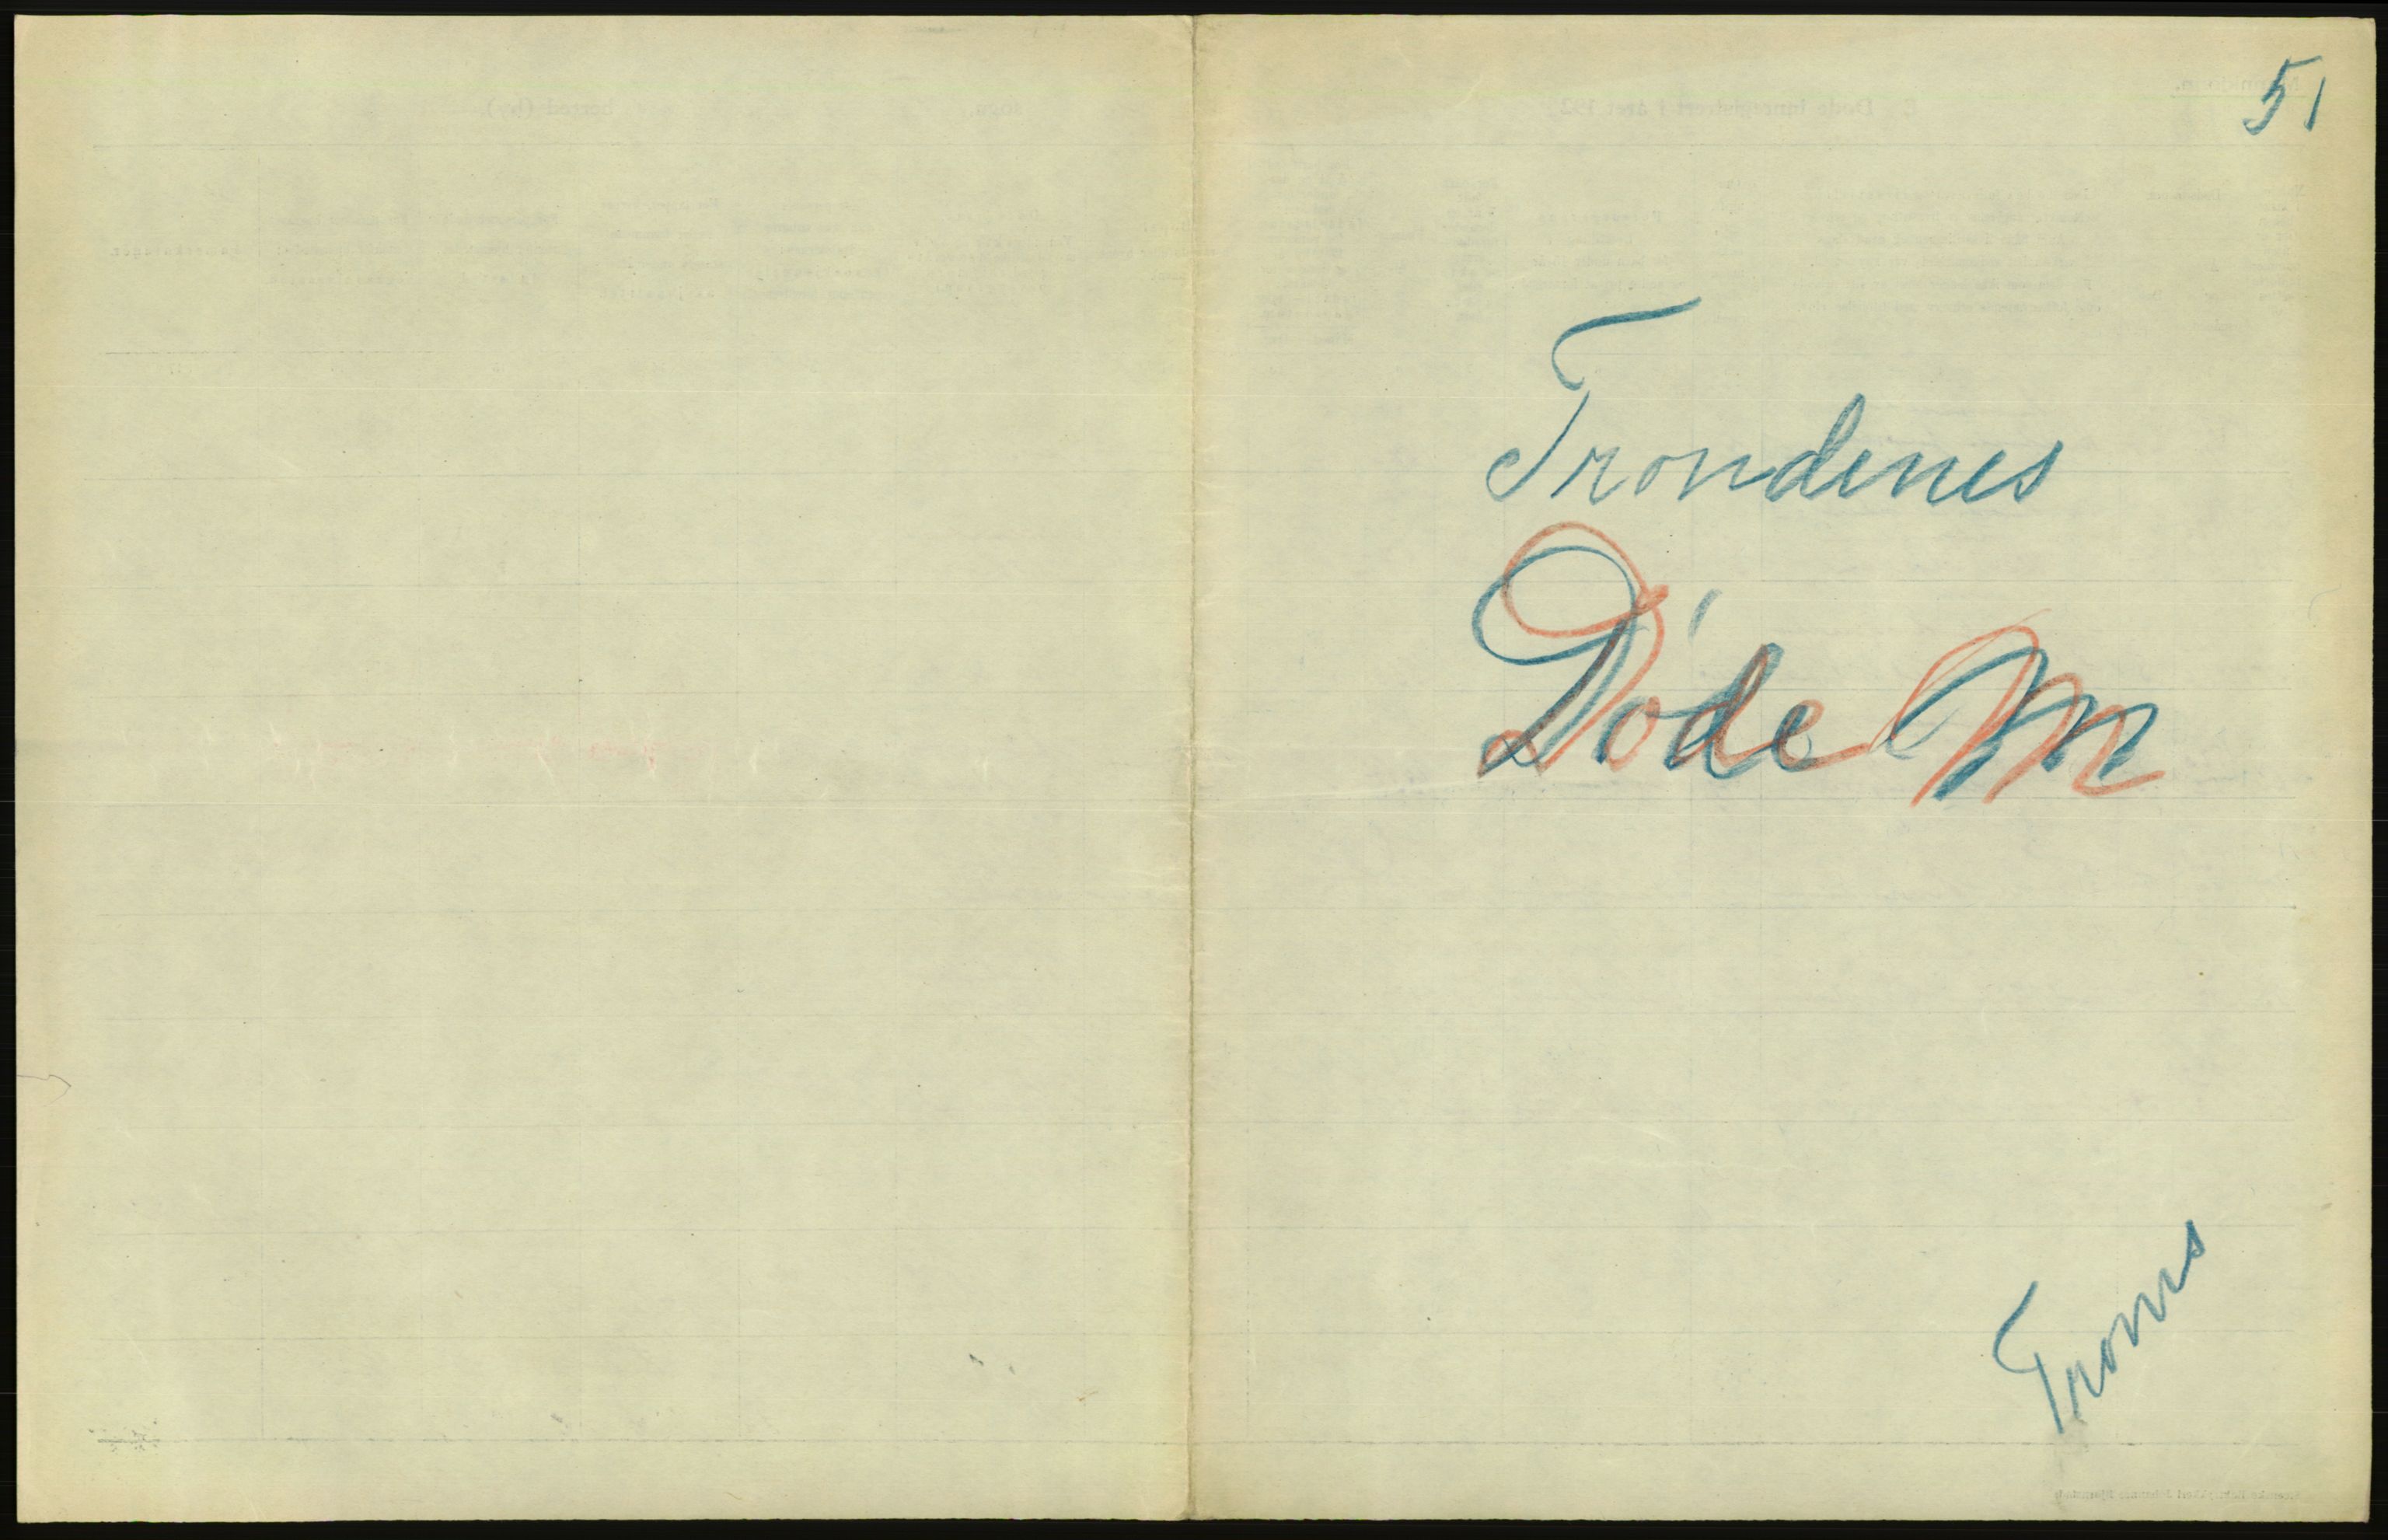 51
Trondenes
Døde M
Troms